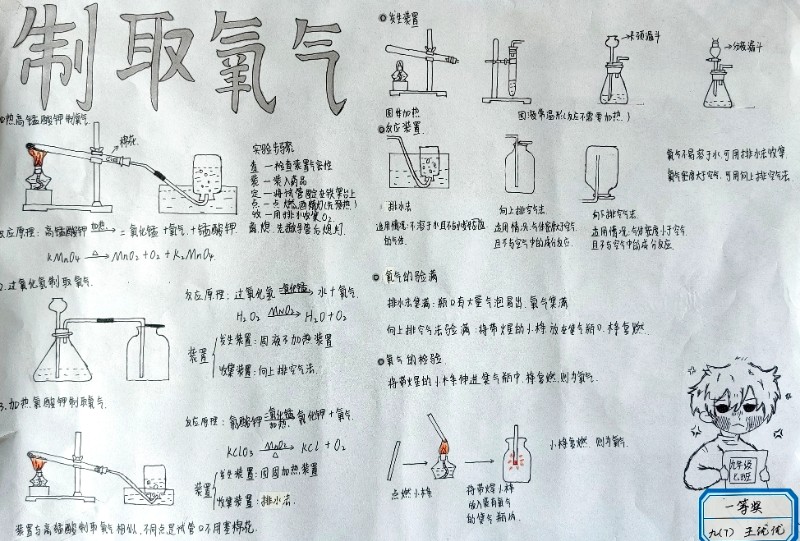 制取氧气
加热高锰酸钾制氧气.
棉花
实验步骤
查一检查装置气密性
装一装入药品
定一将试管固定在铁架台上
收一用排水收集O₂
反应原理: 高锰酸钾 加热→ 二氧化锰+氧气+锰酸钾
KMnO₄ △→ MnO₂+O₂+K₂MnO₄
2.过氧化氢制取氧气.
反应原理: 过氧化氢 二氧化锰→ 水+氧气.
H₂O₂ MnO₂→ H₂O+O₂
装置
发生装置: 固液不加热装置
收集装置: 向上排空气法.
3.加热氯酸钾制取氧气.
反应原理: 氯酸钾 二氧化锰 加热 氯化钾+氧气.
KClO₃ MnO₂ △→ KCl+O₂
装置
发生装置: 固固加热装置
收集装置: 排水法.
装置与高锰酸钾制取氧气相似,不同点是试管口不用塞棉花.
发生装置
长颈漏斗
分液漏斗
固体加热
固液常温形(反应不需要加热)
反应装置.
排水法
适用情况: 不溶于水且不
的气体.
向上排空气法
适用情况: 气体密度大于空气
且不与空气中的成分反应.
向下排空气法.
适用情况: 气体密度小于空气
且不与空气中的成分反应
氧气不易溶于水,可用排水法收集.
氧气密度大于空气.可用向上排空气法.
氧气的验满
排水法集满: 瓶口有大量气泡冒出,氧气集满
向上排空气法验满: 将带火星的小木棒放在集气瓶口.木棒复燃.
氧气的检验
将带火星的小木条伸进集气瓶中,木棒复燃.则为氧气.
点燃小木棒
将带火星小木棒
放入装有氧气
的集气瓶内.
小木棒复燃. 则为氧气.
九年级
七班
一等奖
九(7) 王优优